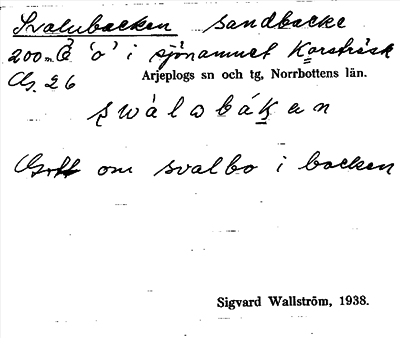 Svalubacken sandbacke
200 m Ö 'o' i sjönamnet Korsträsk
Arjeplogs sn och tg, Norrbottens län.
swàlabákan
Gott om svalbo i backen
Sigvard Wallström, 1938.